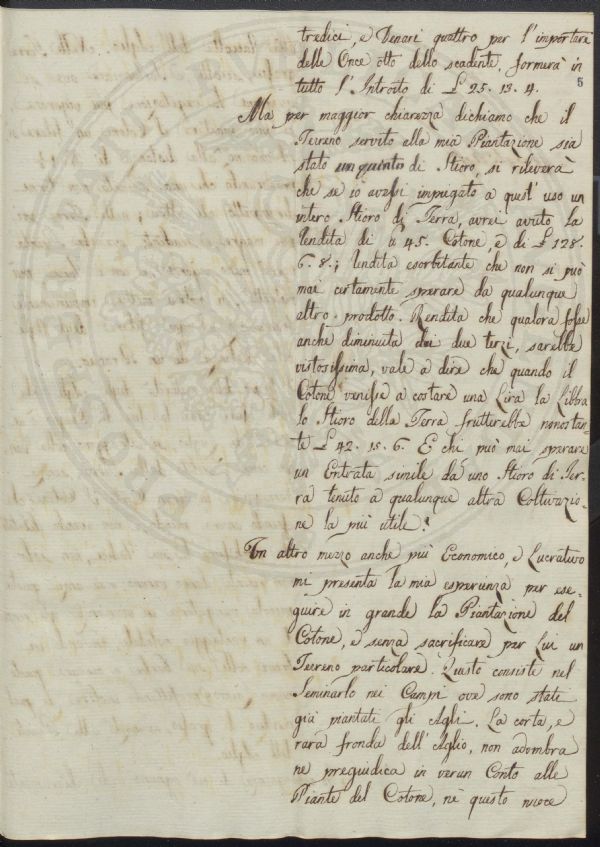 tredici, e Denari quattro per l'importare
delle Once otto dello scadente, formerà in
tutto l'Introito di £ 25. 13. 4.
5
Ma per maggior chiarezza dichiamo che il
Terreno servito alla mia Piantazione sia
stato un quinto di Stioro, si rileverà
che se io avessi impiegato a quest'uso un
intero Stioro di Terra, avrei avuto la
Rendita di 45. Cotone, e di £ 128.
6. 8.; Rendita esorbitante che non si può
mai certamente sperare da qualunque
altro prodotto. Rendita che qualora fosse
anche diminuita dei due terzi, sarebbe
vistosissima, vale a dire che quando il
Cotone venisse a costare una Lira la Libbra
lo Stioro della Terra frutterebbe nonostan=
te £ 42. 15. 6. E chi può mai sperare
un Entrata simile da uno Stioro di Ter=
ra tenuto a qualunque altra Coltivazio=
ne la più utile?
Un altro mezzo anche più Economico, e Lucrativo
mi presenta la mia esperienza per ese=
guire in grande la Piantazione del
Cotone, e senza sacrificare per Lui un
Terreno particolare. Questo consiste nel
Seminarlo nei Campi ove sono stati
già piantati gli Agli. La corta, e
rara fronda dell'Aglio, non adombra
ne pregiudica in verun Conto alle
Piante del Cotone, nè questo nuoce